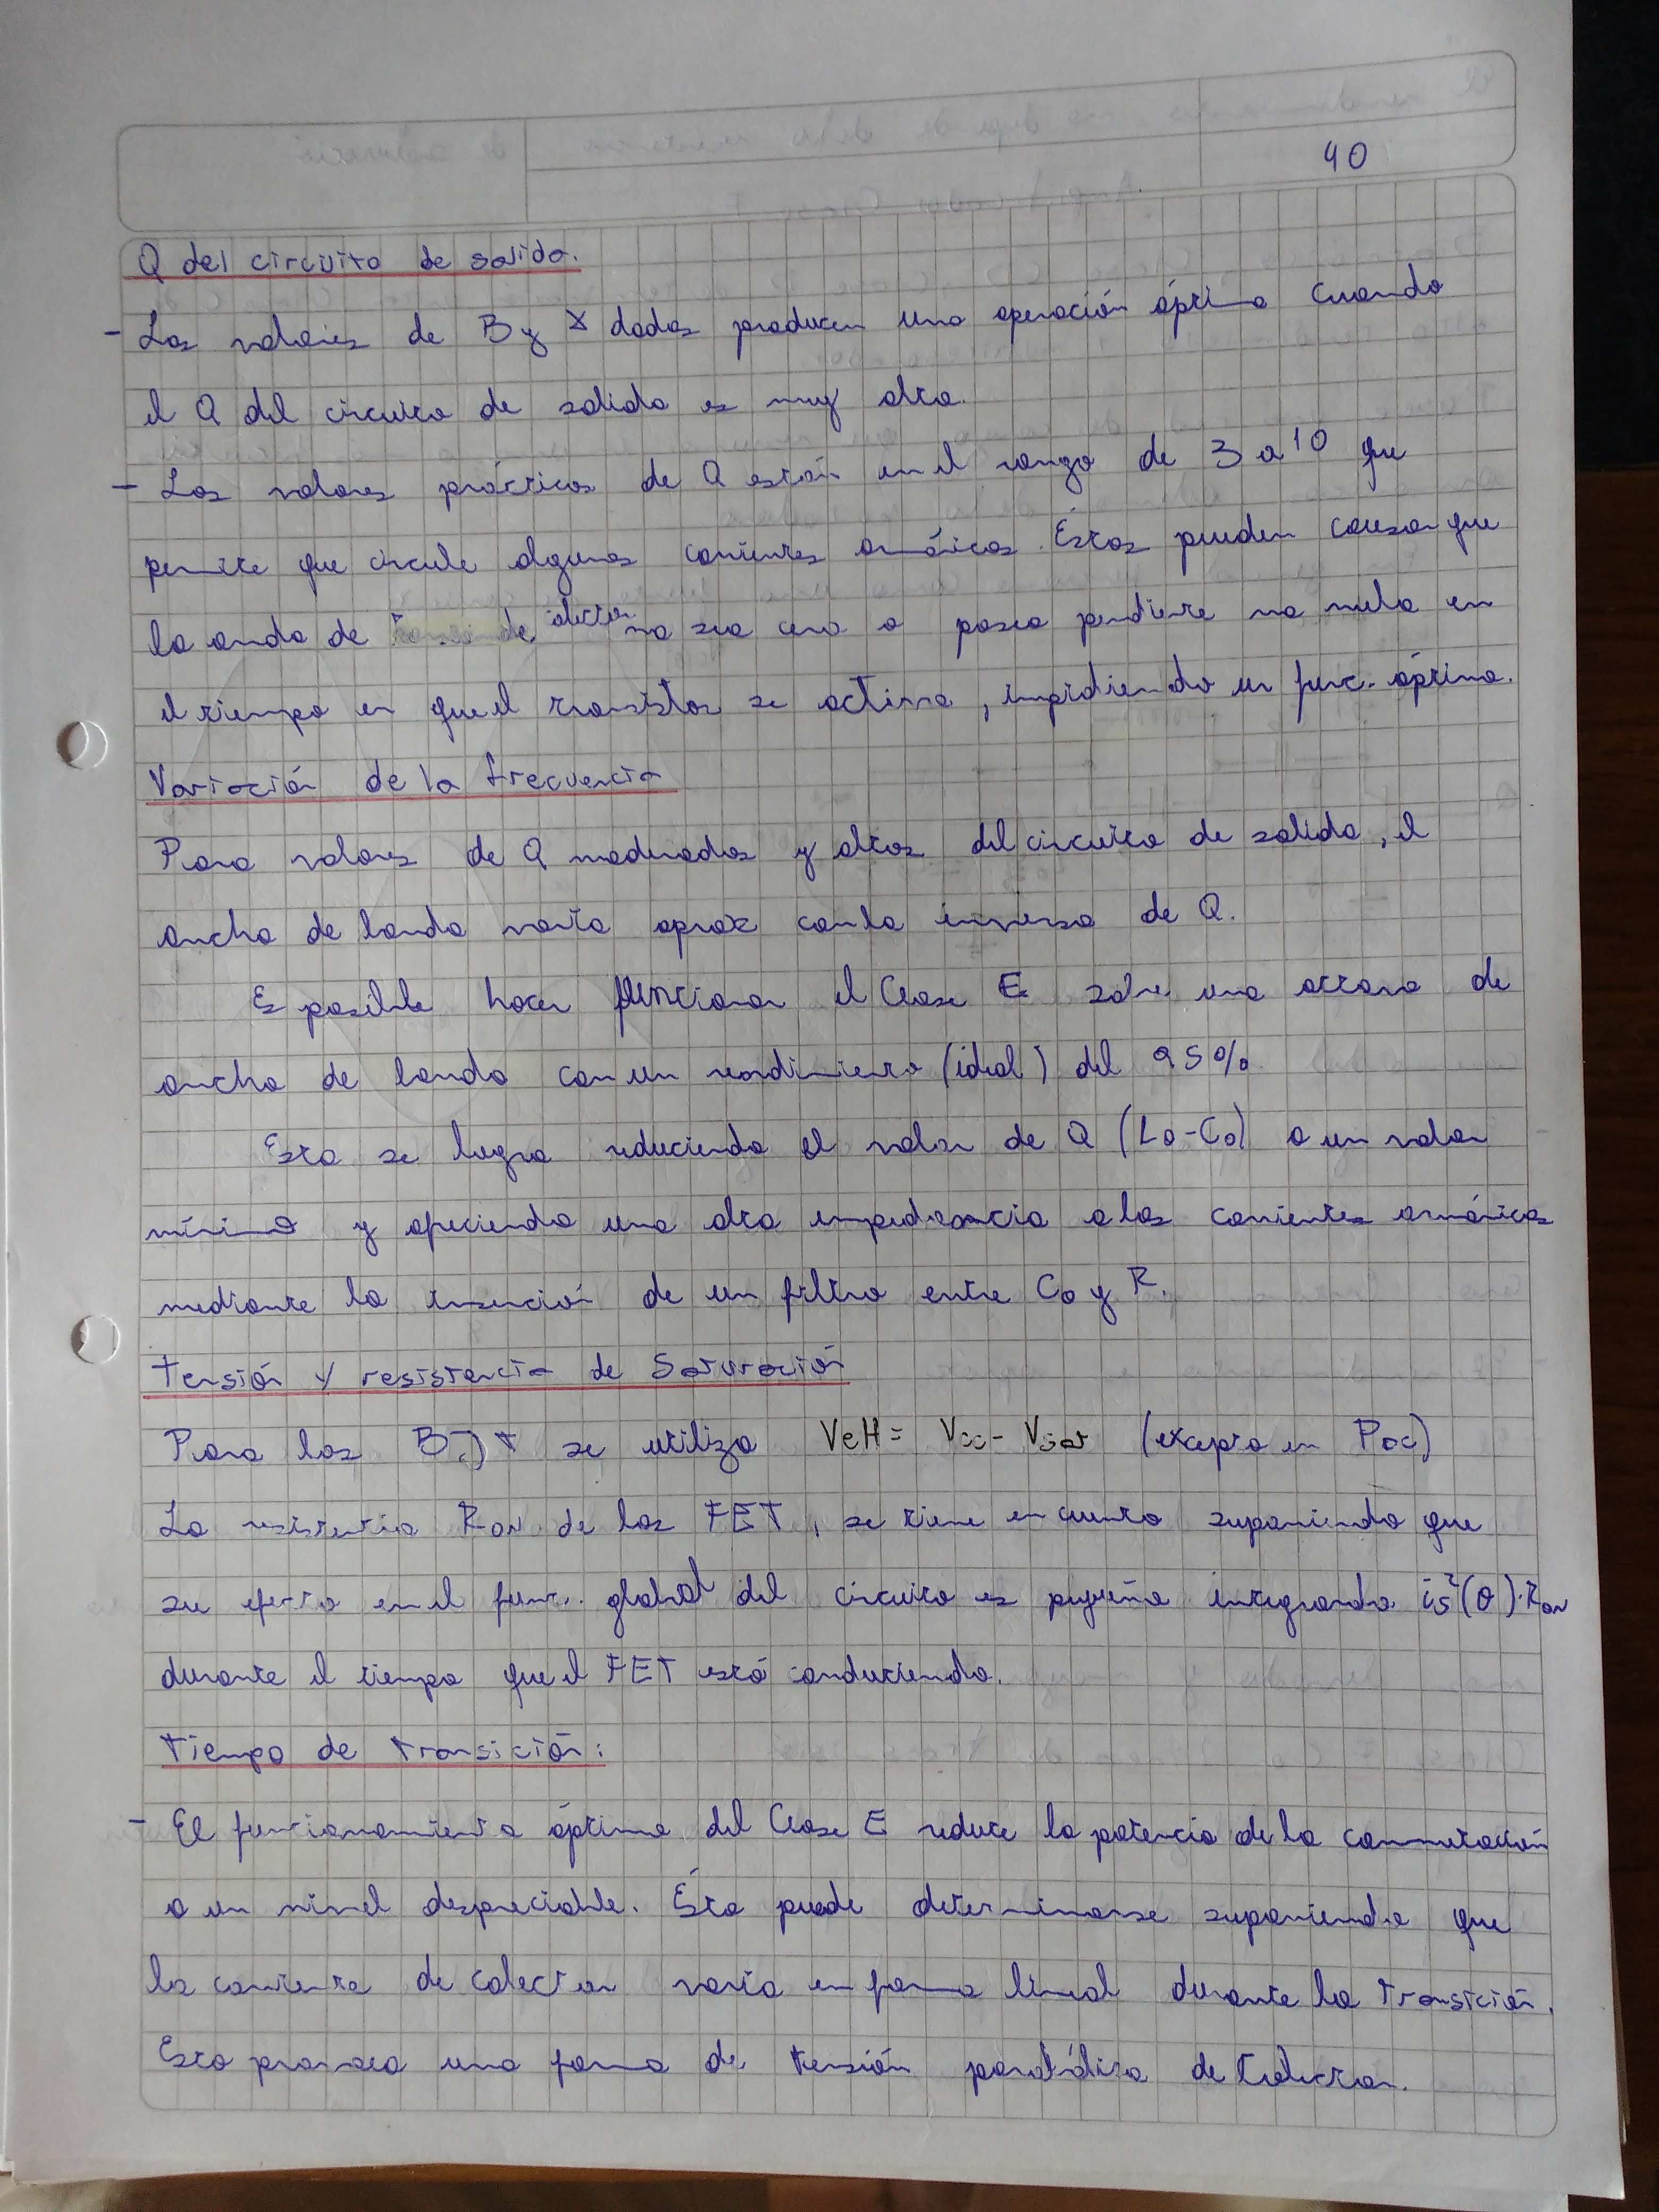 40
Q del circuito de salida.
- Los valores de B y X dados producen una operación óptima cuando
el Q del circuito de salida es muy alto.
- Los valores prácticos de Q están en el rango de 3 a 10 que
permite que circule algunas corrientes armónicas. Éstas pueden causar que
la onda de colector no sea cero o posea pendiente no nula en
el tiempo en que el transistor se activa, impidiendo un func. óptimo.
Variación de la frecuencia
Para valores de Q moderados y altos del circuito de salida, el
ancho de banda varía aprox con la inversa de Q.
Es posible hacer funcionar el Clase E sobre una octava de
ancho de banda con un rendimiento (ideal) del 95%
Esto se logra reduciendo el valor de Q (Lo-Co) a un valor
mínimo y ofreciendo una alta impedancia a las corrientes armónicas
mediante la inserción de un filtro entre Co y R.
Tensión y resistencia de Saturación
Para los BJT se utiliza Veff = Vcc - Vsat (excepto en PDC)
La resistencia RON de los FET, se tiene en cuenta suponiendo que
su efecto en el func. global del circuito es pequeño integrando is²(θ).RON
durante el tiempo que el FET está conduciendo.
Tiempo de transición:
- El funcionamiento óptimo del Clase E reduce la potencia de la conmutación
a un nivel despreciable. Ésta puede determinarse suponiendo que
la corriente de colector varía en forma lineal durante la transición.
Esto provoca una forma de tensión parabólica de Colector.